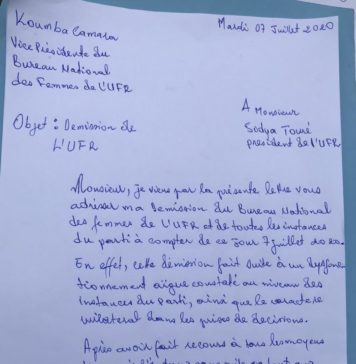 Koumba Camara
Mardi 07 Juillet 2020
Vice Présidente du
Bureau National
des Femmes de L'UFR
A Monsieur
Sidya Touré
président de l'UFR
Objet : Demission de
L'UFR
Monsieur, je viens par la présente lettre vous
adresser ma Demission du Bureau National
des femmes de L'UFR et de toutes les instances
du parti à compter de ce jour 7 juillet 2020.
En effet, cette démission fait suite à un dysfonc
tionnement aigue constaté au niveau des
instances du parti, ainsi que le caractere
unilateral dans les prises de decisions.
Après avoir fait recours à tous les moyens